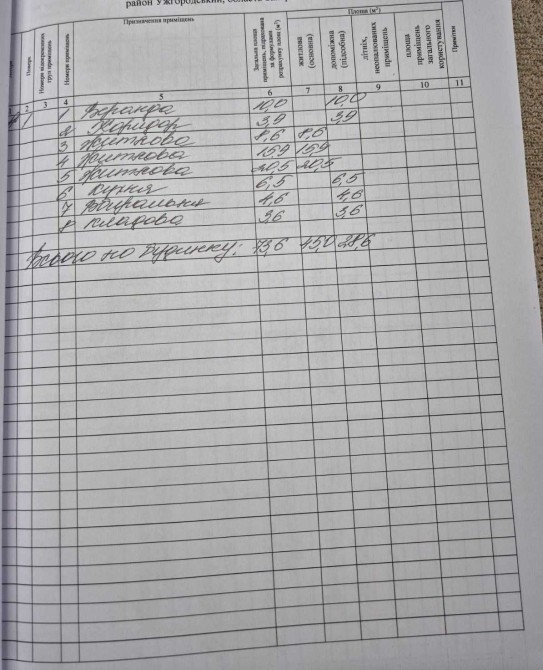 район Ужгородський, область
Номери
Номери приміщень
Призначення приміщень
Площа (м²)
житлова (основна)
допоміжна (підсобна)
літніх, неопалюваних приміщень
площа приміщень загального користування
Примітки
2 3 4 5 6 7 8 9 10 11
1 1 Веранда 10,0 10,0
2 Коридор 3,9 3,9
3 Житлова 8,6 8,6
4 Житлова 15,9 15,9
5 Житлова 20,5 20,5
6 Кухня 6,5 6,5
7 Вбиральня 4,6 4,6
8 Кладова 3,6 3,6
Всього по будинку: 73,6 45,0 28,6